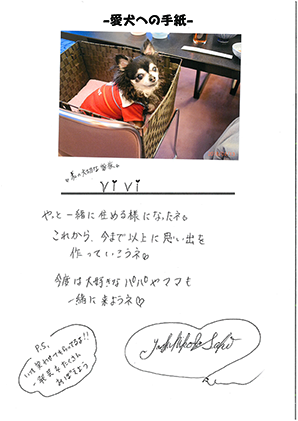 -愛犬への手紙-
私の大切な家族
ViVi
やっと一緒に住める様になったネ
これから、今まで以上に思い出を
作っていこうネ♡
今度は大好きなパパやママも
一緒に来ようネ♡
P.S.
いつも笑わせてもらってるよ!!